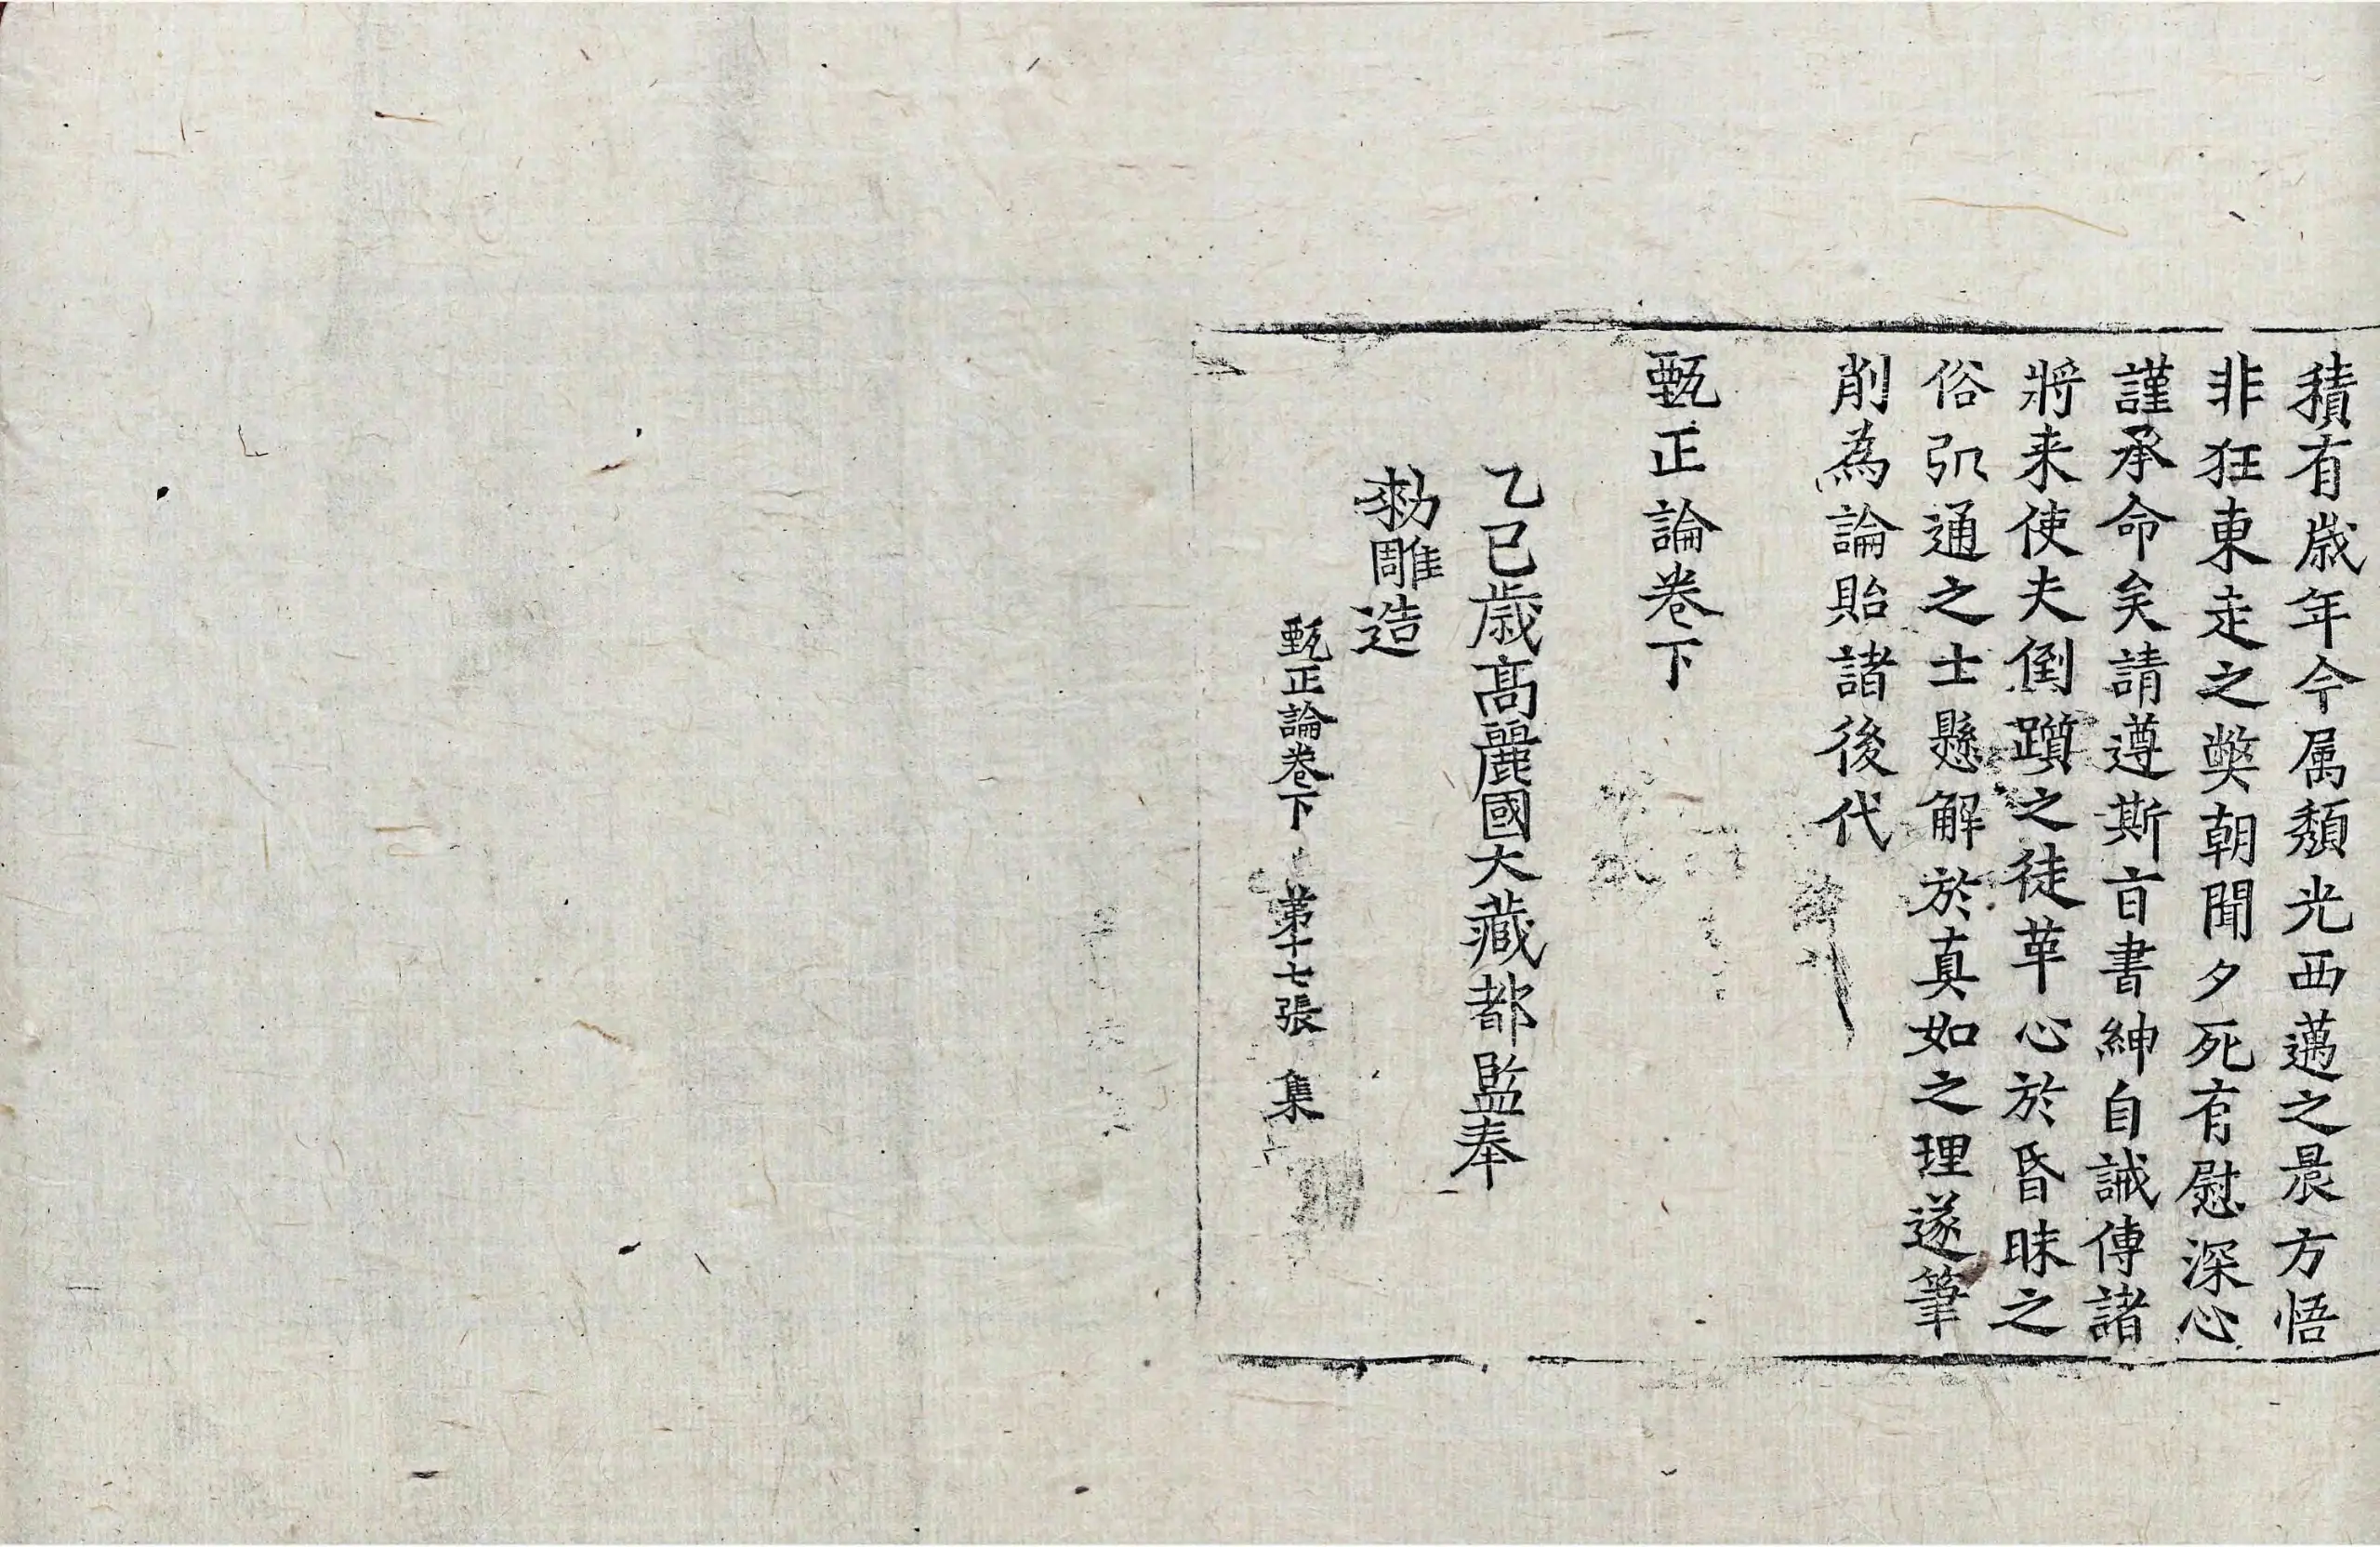 積有歲年今属頹光西邁之晨方悟
非狂東走之獘朝聞夕死有慰深心
謹承命矣請遵斯旨書紳自誡傳諸
將来使夫倒躓之徒革心於昏昧之
俗弘通之士懸解於真如之理遂筆
削為論貽諸後代
甄正論卷下
乙巳歲髙麗國大藏都監奉
勑雕造
甄正論卷下 第十七張 集